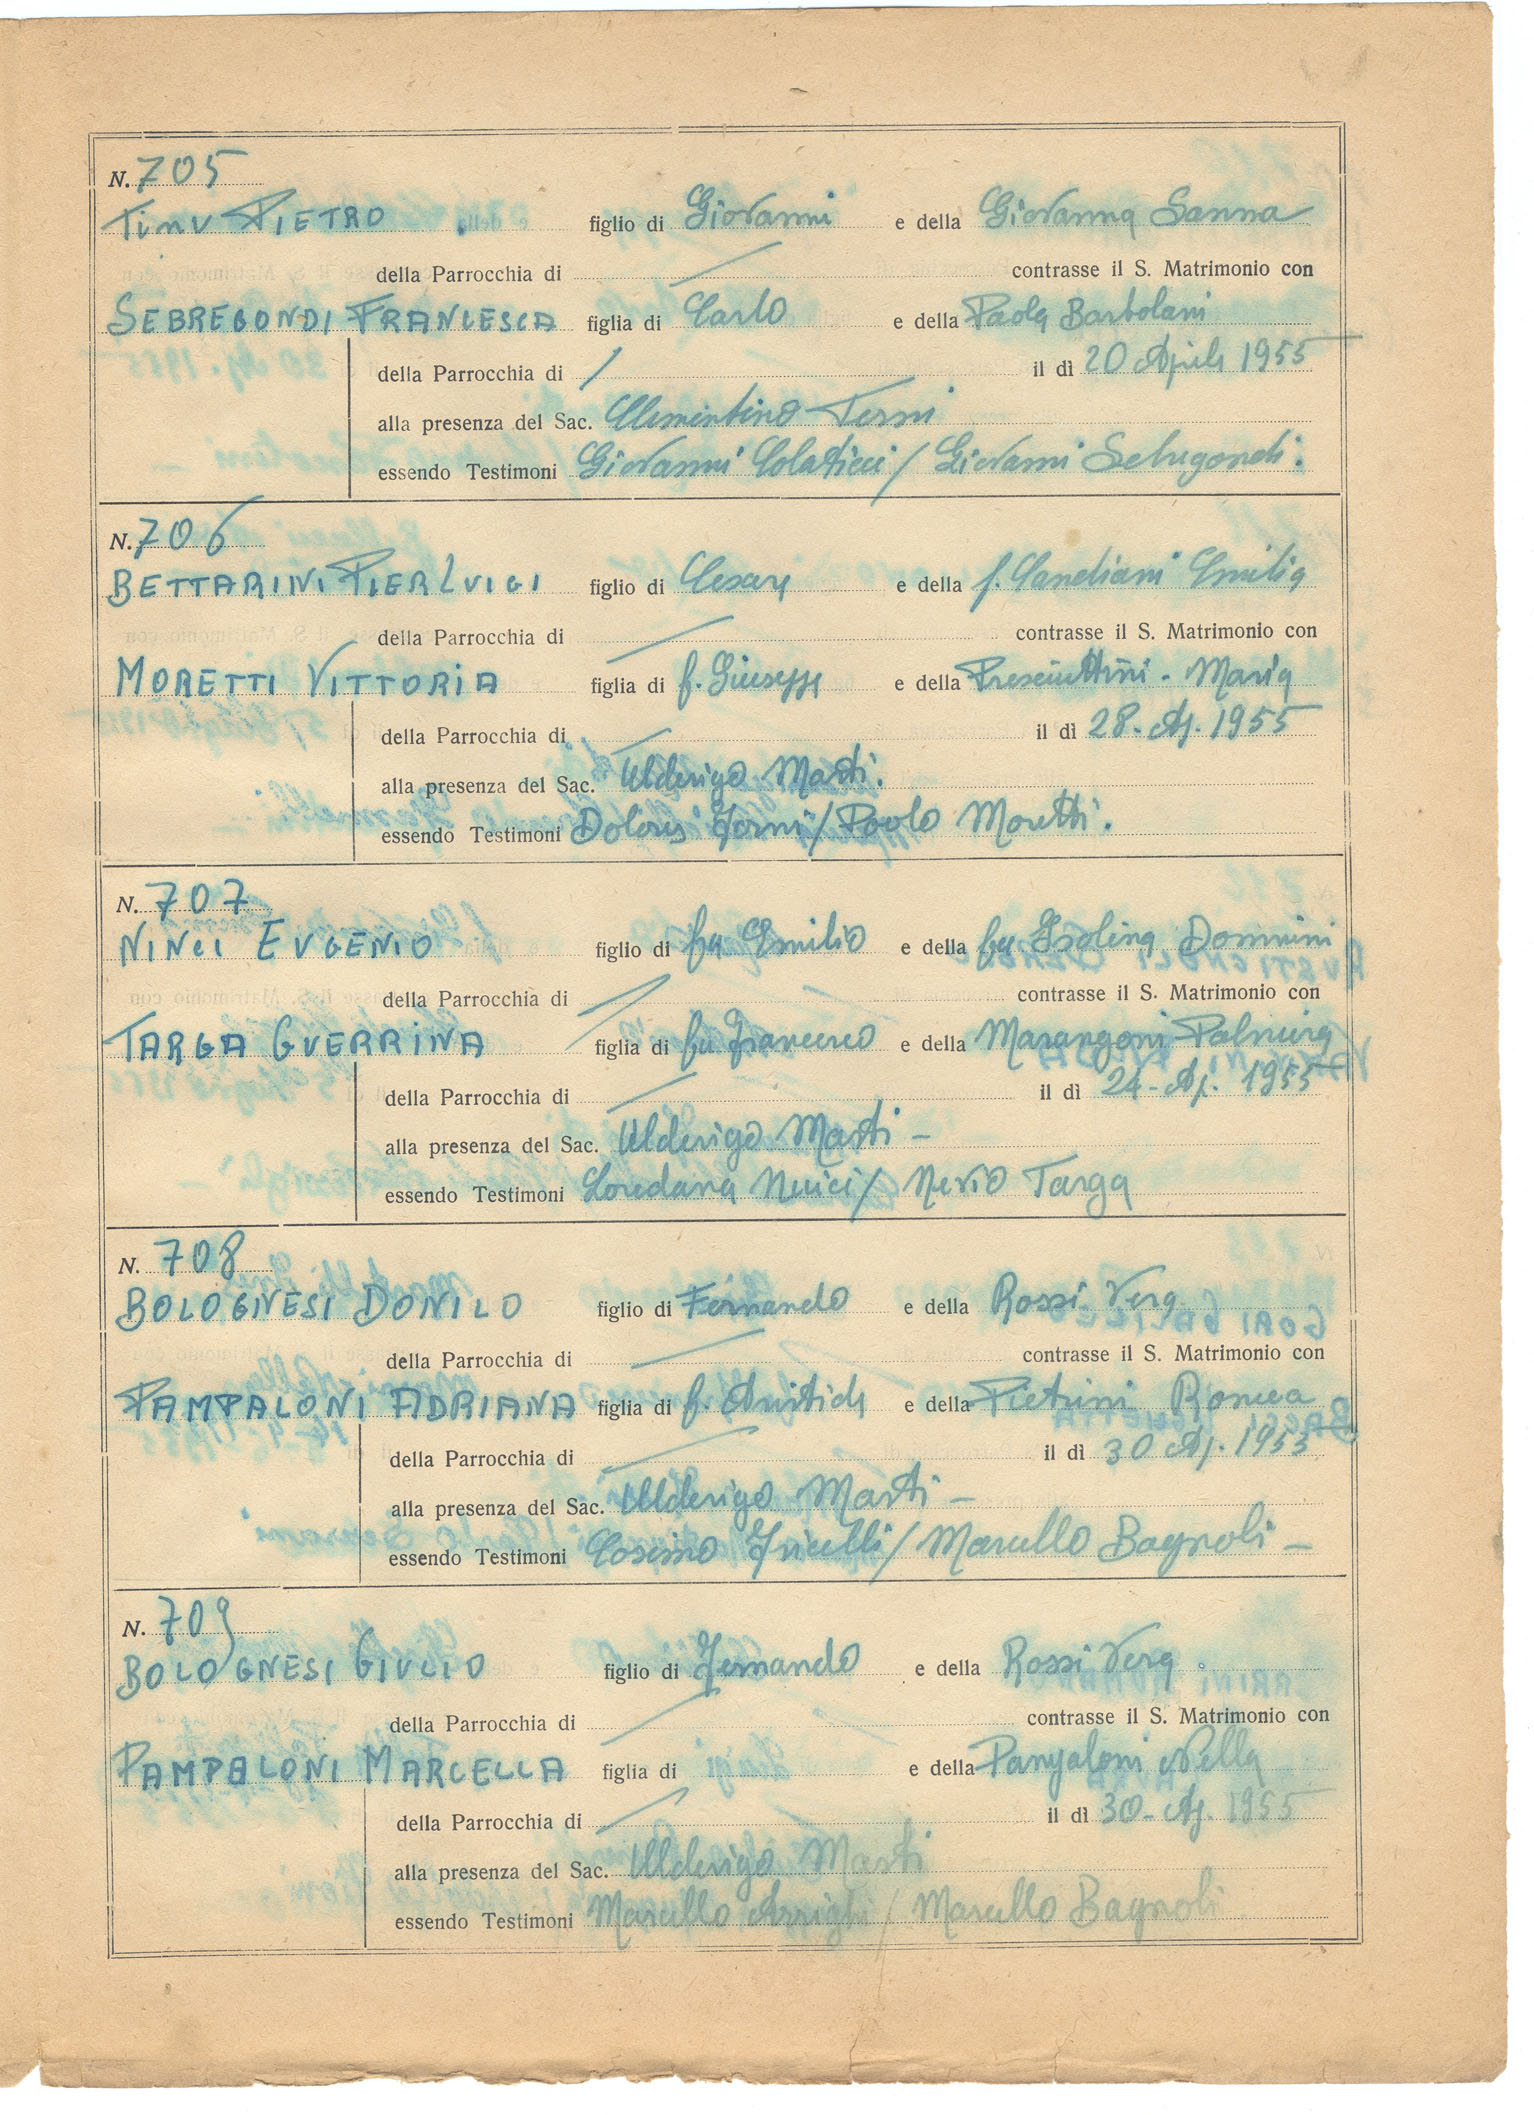 N. 705
TINU PIETRO figlio di Giovanni e della Giovanna Sanna
della Parrocchia di / contrasse il S. Matrimonio con
SEBREGONDI FRANCESCA figlia di Carlo e della Paola Barbolani
della Parrocchia di / il dì 20 Aprile 1955
alla presenza del Sac. Clementino Terni
essendo Testimoni Giovanni / Giovanni
N. 706
BETTARINI PIERLUIGI figlio di Cesare e della f. Candiani Emilia
della Parrocchia di / contrasse il S. Matrimonio con
MORETTI VITTORIA figlia di f. Giuseppe e della Presciuttini - Maria
della Parrocchia di / il dì 28. Ap. 1955
alla presenza del Sac. Ulderigo Masti.
essendo Testimoni Dolores / Paolo Moretti.
N. 707
NINCI EUGENIO figlio di fu Emilio e della fu Isolina Donnini
della Parrocchia di / contrasse il S. Matrimonio con
TARGA GUERRINA figlia di fu Francesco e della Marangoni Palmira
della Parrocchia di / il dì 24 - Ap. 1955
alla presenza del Sac. Ulderigo Masti -
essendo Testimoni Loredana Ninci / Nevio Targa
N. 708
BOLOGNESI DONILO figlio di Fernando e della Rossi Vera
della Parrocchia di / contrasse il S. Matrimonio con
PAMPALONI ADRIANA figlia di f. Aristide e della Pietrini
della Parrocchia di / il dì 30 Ap. 1955
alla presenza del Sac. Ulderigo Masti -
essendo Testimoni Cosimo / Marcello Bagnoli -
N. 709
BOLOGNESI GIULIO figlio di Fernando e della Rossi Vera
della Parrocchia di / contrasse il S. Matrimonio con
PAMPALONI MARCELLA figlia di e della Pampaloni Nella
della Parrocchia di / il dì 30 - Ap. 1955
alla presenza del Sac. Ulderigo Masti
essendo Testimoni Marcello Arrighi / Marcello Bagnoli